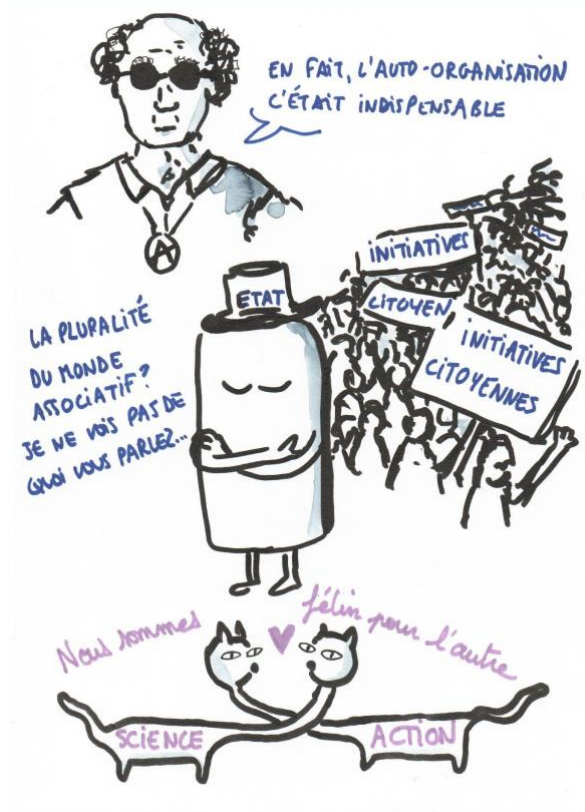 EN FAIT, L'AUTO-ORGANISATION
C'ÉTAIT INDISPENSABLE
A
INITIATIVES
CITOYEN
INITIATIVES
CITOYENNES
ETAT
LA PLURALITÉ
DU MONDE
ASSOCIATIF?
JE NE VOIS PAS DE
QUOI VOUS PARLEZ...
Nous sommes félin pour l'autre
SCIENCE
ACTION